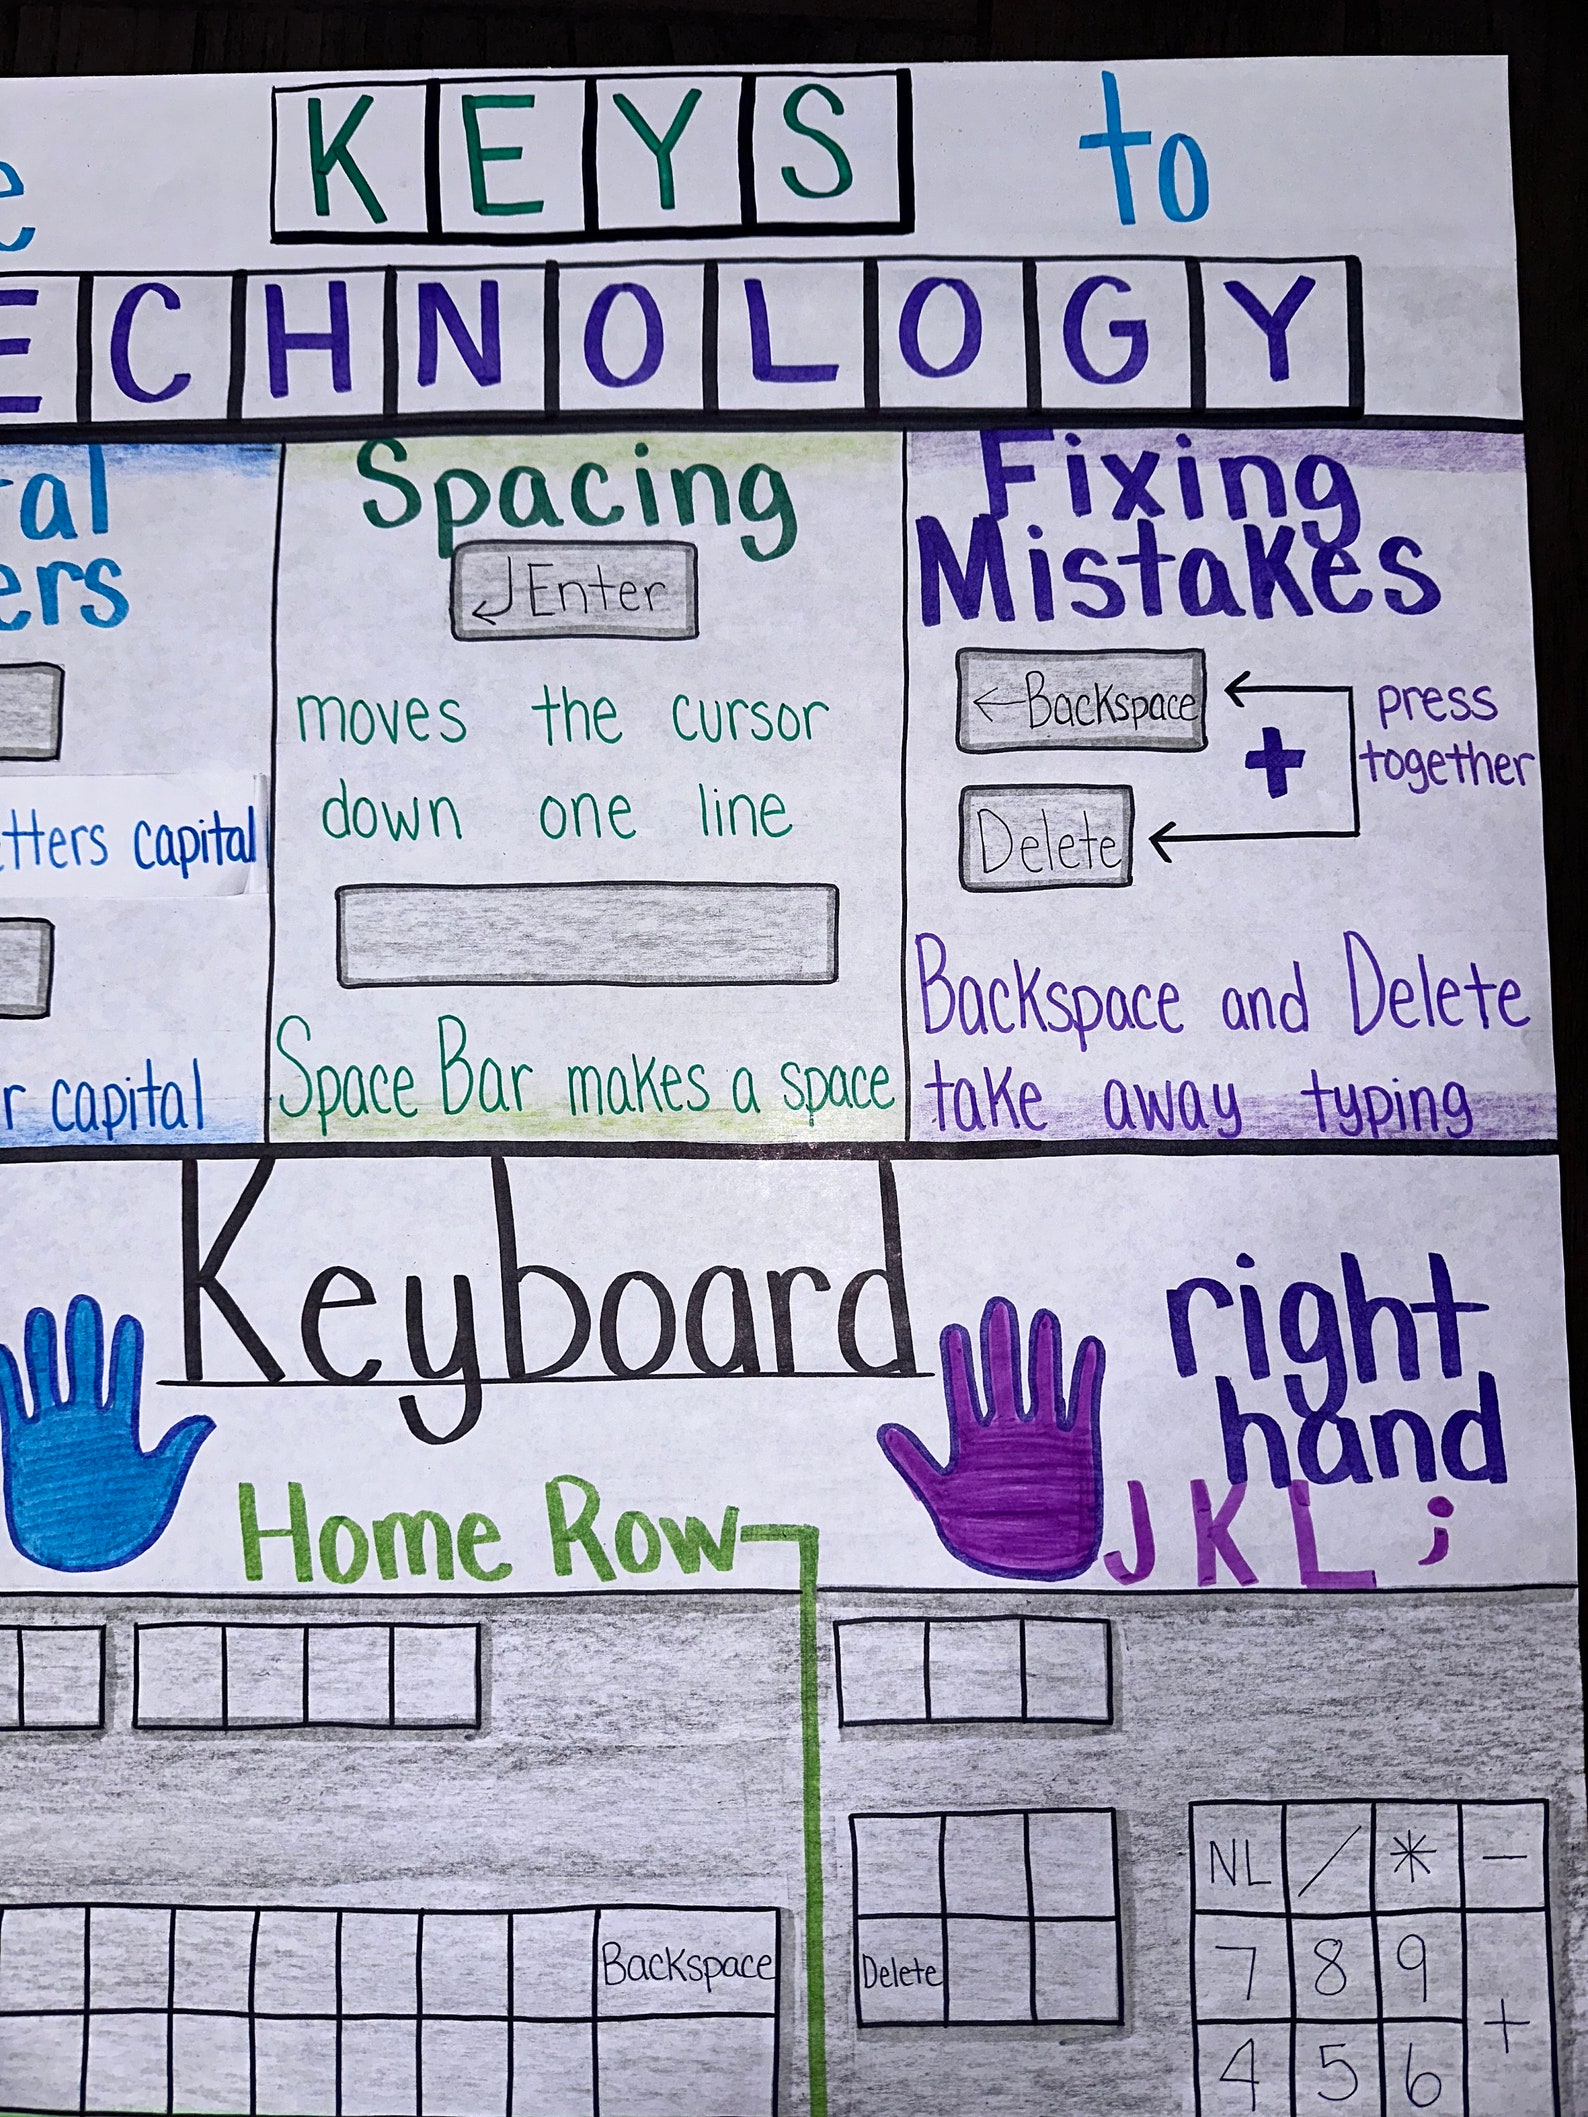 KEYS to
ECHNOLOGY
al
ers
tters capital
r capital
Spacing
Enter
moves the cursor
down one line
Space Bar makes a space
Fixing
Mistakes
←Backspace
+
press
together
Delete
Backspace and Delete
take away typing
Keyboard
Home Row
right
hand
J K L ;
Backspace
Delete
NL / * -
7 8 9
+
4 5 6